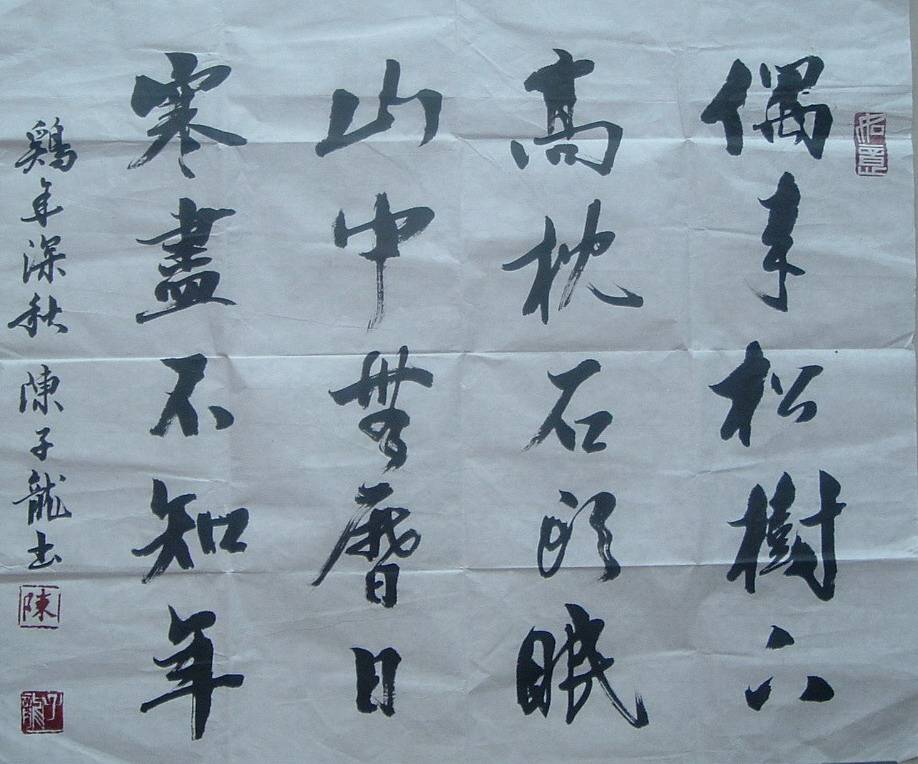 如意
偶來松樹下
高枕石頭眠
山中無曆日
寒盡不知年
鷄年深秋 陳子龍书
陳
子龍